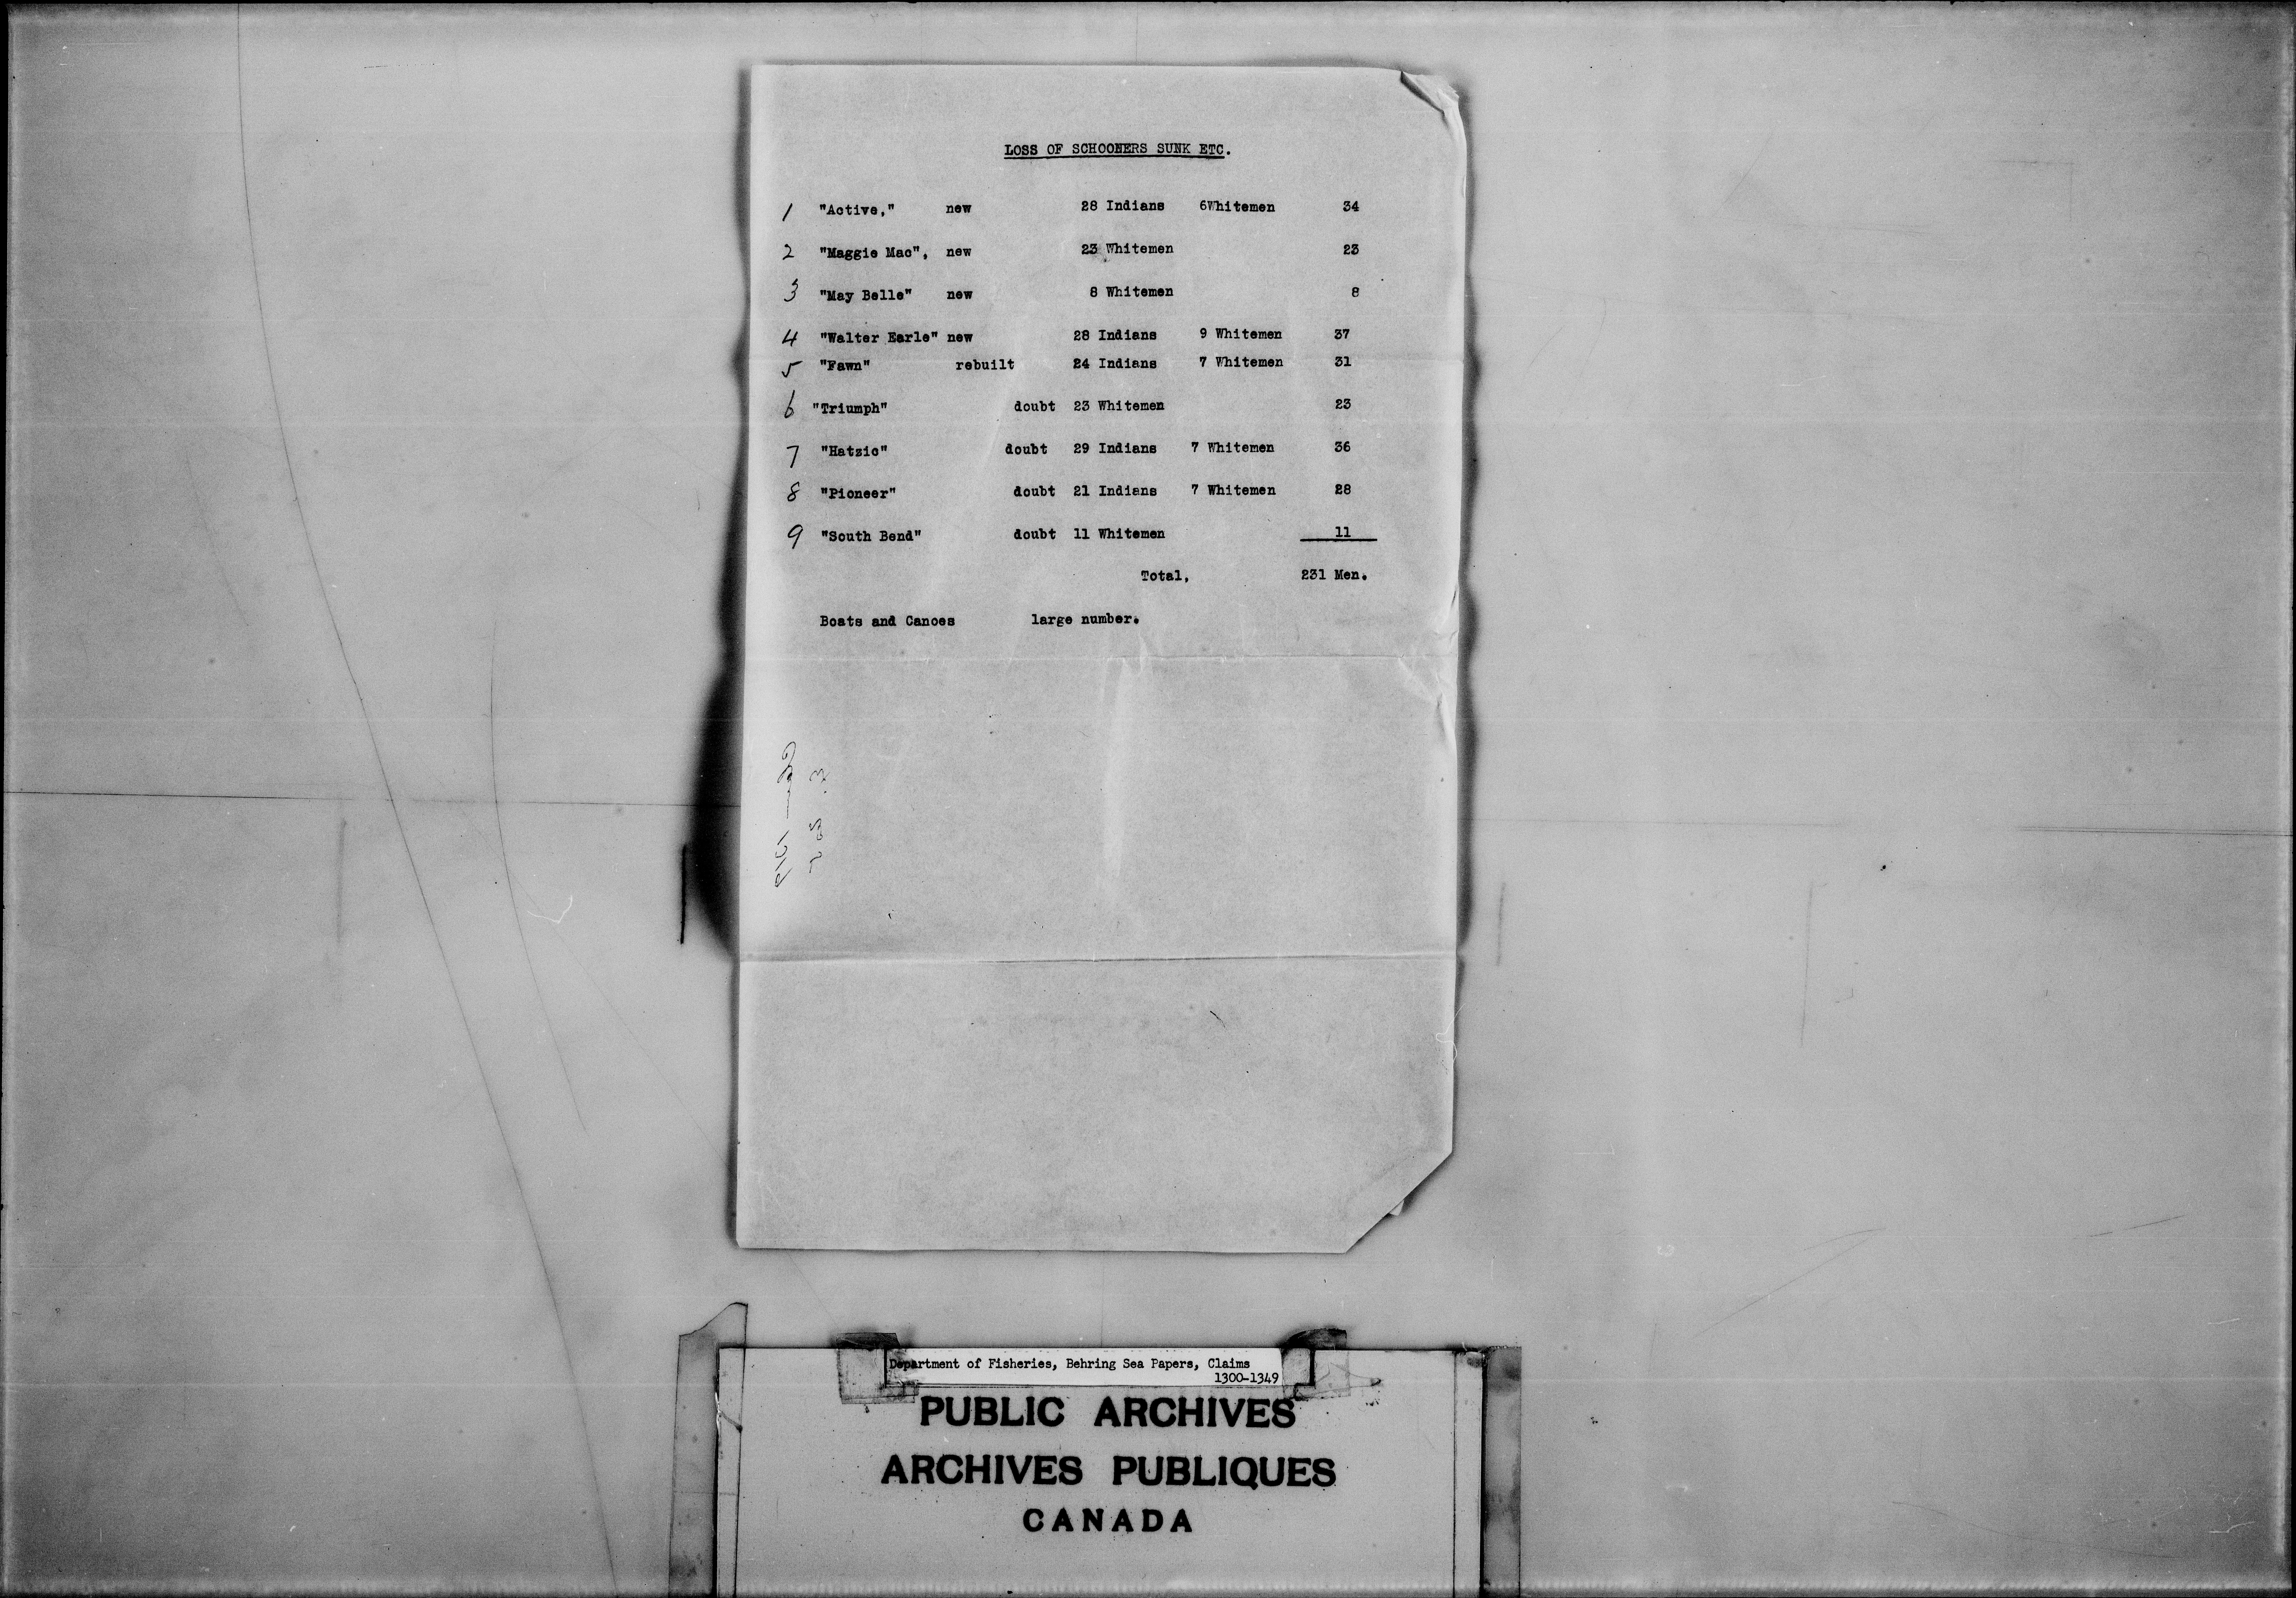 LOSS OF SCHOONERS SUNK ETC.
1 "Active," new 28 Indians 6Whitemen 34
2 "Maggie Mac", new 23 Whitemen 23
3 "May Belle" new 8 Whitemen 8
4 "Walter Earle" new 28 Indians 9 Whitemen 37
5 "Fawn" rebuilt 24 Indians 7 Whitemen 31
6 "Triumph" doubt 23 Whitemen 23
7 "Hatzic" doubt 29 Indians 7 Whitemen 36
8 "Pioneer" doubt 21 Indians 7 Whitemen 28
9 "South Bend" doubt 11 Whitemen 11
Total, 231 Men.
Boats and Canoes large number.
Department of Fisheries, Behring Sea Papers, Claims
1300-1349
PUBLIC ARCHIVES
ARCHIVES PUBLIQUES
CANADA